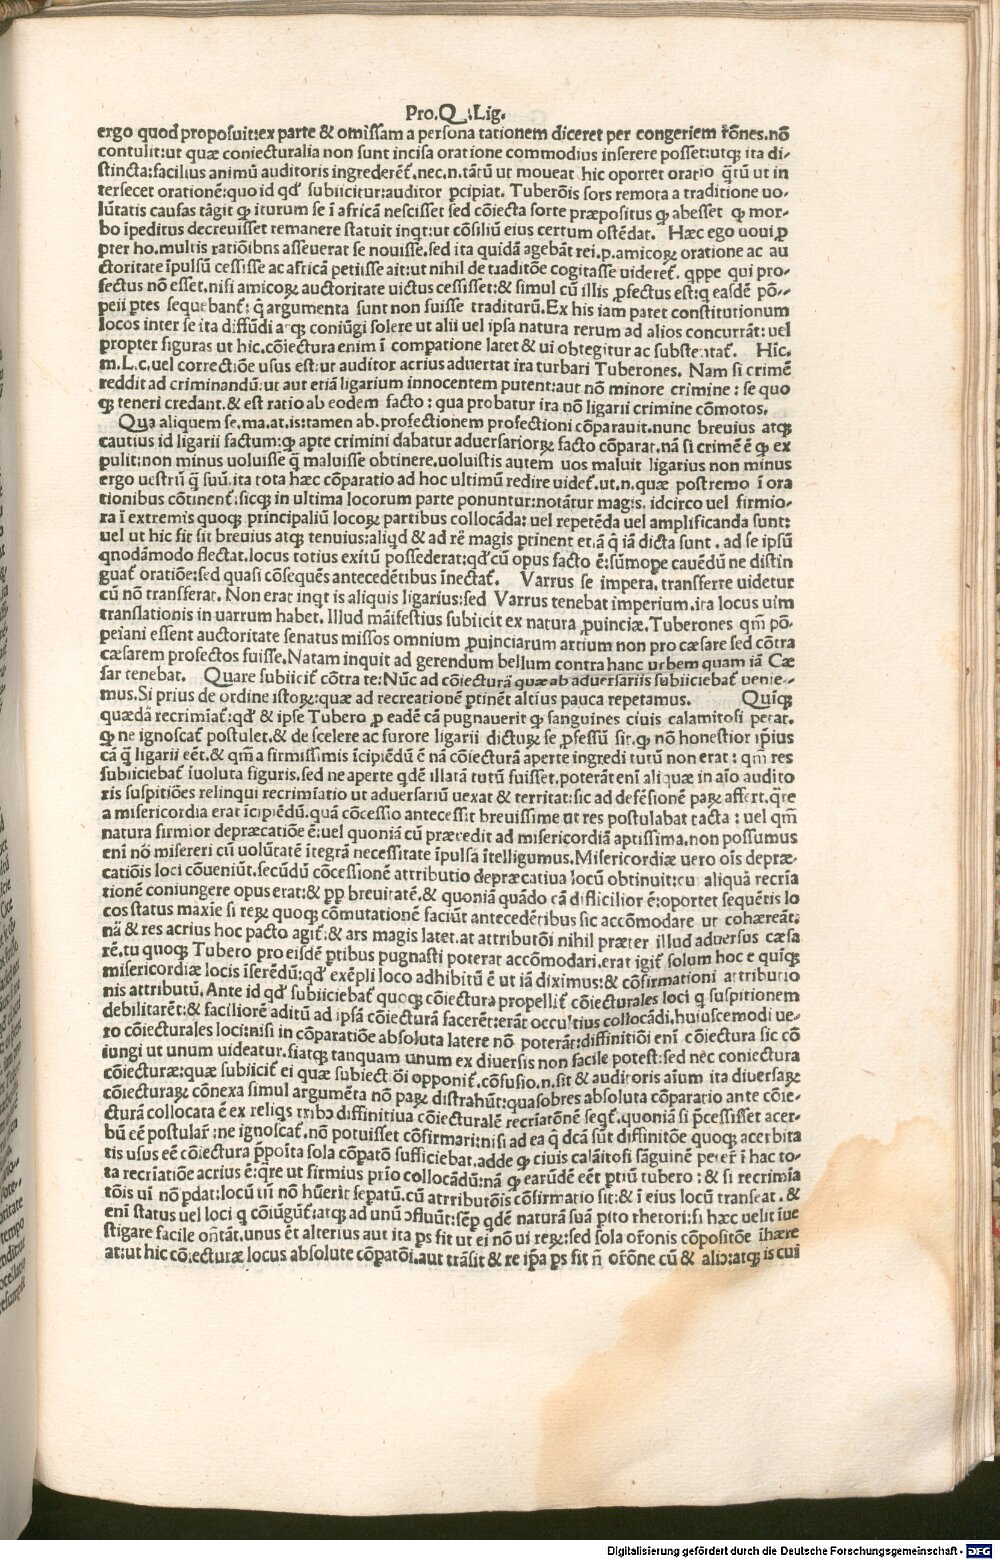 Pro.Q.Lig.
ergo quod proposuit:ex parte & omissam a persona tationem diceret per congeriem rõnes.nõ
contulit:ut quæ coniecturalia non sunt incisa oratione commodius inserere posset:utqꝫ ita di-
stincta:facilius animũ auditoris ingrederet̃.nec.n.tãtũ ut moueat hic oportet oratio q̃tũ ut in
tersecet orationẽ:quo id qđ subiicitur:auditor ꝑcipiat. Tuberõis sors remota a traditione uo-
lũtatis causas tãgit ꝙ iturum se ĩ africã nescisset sed cõiecta sorte præpositus ꝙ abesset ꝙ mor-
bo ĩpeditus decreuisset remanere statuit inqt:ut cõsiliũ eius certum ostẽdat. Hæc ego noui ꝓ
pter ho.multis ratiõibns asseuerat se nouisse.sed ita quidã agebãt rei.p.amicoꝝ oratione ac au
ctoritate ĩpulsũ cessisse ac africã petiisse ait:ut nihil de traditõe cogitasse uideret̃. qppe qui pro-
fectus nõ esset.nisi amicoꝝ auctoritate uictus cessisset:& simul cũ illis ꝓfectus est:q easdẽ põ-
peii ꝑtes sequebant̃: q̃ argumenta sunt non fuisse traditurũ.Ex his iam patet constitutionum
locos inter se ita diffũdi atqꝫ coniũgi solere ut alii uel ipsa natura rerum ad alios concurrãt: uel
propter figuras ut hic.cõiectura enim ĩ compatione latet & ui obtegitur ac substentat̃. Hic.
m.L.c.uel correctiõe usus est:ut auditor acrius aduertat ira turbari Tuberones. Nam si crimẽ
reddit ad criminandũ:ut aut etiã ligarium innocentem putent:aut nõ minore crimine : se quo
qꝫ teneri credant.& est ratio ab eodem facto : qua probatur ira nõ ligarii crimine cõmotos.
Qua aliquem se.ma.at.is:tamen ab.profectionem profectioni cõparauit.nunc breuius atqꝫ
cautius id ligarii factum:ꝙ apte crimini dabatur aduersarioꝝ facto cõparat.nã si crimẽ ẽ ꝙ ex
pulit:non minus uoluisse q̃ maluisse obtinere.uoluistis autem uos maluit ligarius non minus
ergo uestrũ q̃ suũ.ita tota hæc cõparatio ad hoc ultimũ redire uidet̃.ut.n.quæ postremo ĩ ora
tionibus cõtinent̃:sicqꝫ in ultima locorum parte ponuntur:notãtur magis. idcirco uel firmio-
ra ĩ extremis quoqꝫ principaliũ locoꝝ partibus collocãda: uel repetẽda uel amplificanda sunt:
uel ut hic fit sit breuius atqꝫ tenuius:aliqd & ad rẽ magis ꝑtinent et.ã q̃ iã dicta sunt . ad se ipsũ
qnodãmodo flectat.locus totius exitũ possederat:qđ cũ opus facto ẽ:sũmope cauẽdũ ne distin
guat̃ oratiõe:sed quasi cõsequẽs antecedẽtibus ĩnectat̃. Varrus se impera. transferre uidetur
cũ nõ transferat. Non erat inqt is aliquis ligarius:sed Varrus tenebat imperium.ita locus uim
translationis in uarrum habet. Illud mãifestius subiicit ex natura ꝓuinciæ.Tuberones qm̃ põ-
peiani essent auctoritate senatus missos omnium ꝓuinciarum artium non pro cæsare sed cõtra
cæsarem profectos fuisse.Natam inquit ad gerendum bellum contra hanc urbem quam iã Cæ
sar tenebat. Quare subiicit̃ cõtra te: Nũc ad cõiecturã quæ ab aduersariis subiiciebat̃ uenie-
mus.Si prius de ordine istoꝝ:quæ ad recreationẽ ꝑtinẽt altius pauca repetamus. Quiqꝫ
quædã recrimiat̃:qđ & ipse Tubero ꝓ eadẽ cã pugnauerit ꝙ sanguines ciuis calamitosi petat.
ꝙ ne ignoscat̃ postulet.& de scelere ac furore ligarii dictuꝝ se ꝓfessũ sit.ꝙ nõ honestior ip̃ius
cã q̃ ligarii eẽt.& qm̃ a firmissimis ĩcipiẽdũ ẽ nã cõiecturã aperte ingredi tutũ non erat : qm̃ res
subiiciebat̃ ĩuoluta figuris.sed ne aperte qdẽ illatã tutũ fuisset.poterãt enĩ aliquæ in aĩo audito
ris suspitiões relinqui recrimĩatio ut aduersariũ uexat & territat:sic ad defẽsionẽ paꝝ affert.q̃re
a misericordia erat ĩcipiẽdũ.quã cõcessio antecessit breuissime ut res postulabat tacta : uel qm̃
natura firmior depræcatiõe ẽ:uel quoniã cũ præcedit ad misericordiã aptissima.non possumus
enĩ nõ misereri cũ uolũtatẽ ĩtegrã necessitate ĩpulsã ĩtelligumus.Misericordiæ uero oĩs depræ-
catiõis loci cõueniũt.secũdũ cõcessionẽ attributio depræcatiua locũ obtinuit:cui aliquã recrĩa
tionẽ coniungere opus erat:& ꝓp breuitatẽ.& quoniã quãdo cã difficilior ẽ:oportet sequẽtis lo
cos status maxĩe si reꝝ quoqꝫ cõmutationẽ faciũt antecedẽtibus sic accõmodare ut cohæreãt:
nã & res acrius hoc pacto agit̃:& ars magis latet.at attributõi nihil præter illud aduersus cæsa
rẽ.tu quoqꝫ Tubero pro eisdẽ ꝑtibus pugnasti poterat accõmodari.erat igit̃ solum hoc e quiqꝫ
misericordiæ locis ĩserẽdũ:qđ exẽpli loco adhibitũ ẽ ut iã diximus:& cõfirmationi attributio
nis attributũ.Ante id qđ subiiciebat̃ quoqꝫ cõiectura propellit̃ cõiecturales loci q suspitionem
debilitarẽt:& faciliorẽ aditũ ad ipsã cõiecturã facerẽt:erãt occultius collocãdi.huiuscemodi ue-
ro cõiecturales loci:nisi in cõparatiõe absoluta latere nõ poterãt:diffinitiõi enĩ cõiectura sic cõ
iungi ut unum uideatur.fiatqꝫ tanquam unum ex diuersis non facile potest:sed nec coniectura
cõiecturæ:quæ subiicit̃ ei quæ subiectõi opponit̃.cõfusio.n.sit & auditoris aĩum ita diuersaꝝ
cõiecturaꝝ cõnexa simul argumẽta nõ paꝝ distrahũt:quasobres absoluta cõparatio ante cõie-
cturã collocata ẽ ex reliqs tribꝰ diffinitiua cõiecturalẽ recrĩatõnẽ seqt̃. quoniã si p̃cessisset acer-
bũ eẽ postulaɼ̃ :ne ignoscat̃.nõ potuisset cõfirmari:nisi ad ea q̃ dcã sũt diffinitõe quoqꝫ acerbita
tis usus eẽ cõiectura p̃poĩta sola cõpatõ sufficiebat.adde ꝙ ciuis calãitosi sãguinẽ peter̃ ĩ hac to-
ta recrĩatiõe acrius ẽ:q̃re ut firmius prĩo collocãdũ:nã ꝙ earũdẽ eẽt ꝑtiũ tubero : & si recrimĩa
tõis uĩ nõ ꝑdat:locũ tñ nõ hũerit sepatũ.cũ attributõis cõfirmatio sit:& ĩ eius locũ transeat . &
enĩ status uel loci q cõiũgũt̃:atqꝫ ad unũ ↄfluũt:sẽꝑ qdẽ naturã suã ꝑito rhetori:si hæc uelit ĩue
stigare facile oñtãt.unus ẽt alterius aut ita ps fit ut ei nõ ui reꝝ:sed sola oɼ̃onis cõpositõe ĩhære
at:ut hic cõiecturæ locus absolute cõpatõi.aut trãsit & re ip̃a ps fit ñ oɼ̃õne cũ & aliꝰ:atqꝫ is cui
Digitalisierung gefördert durch die Deutsche Forschungsgemeinschaft - DFG